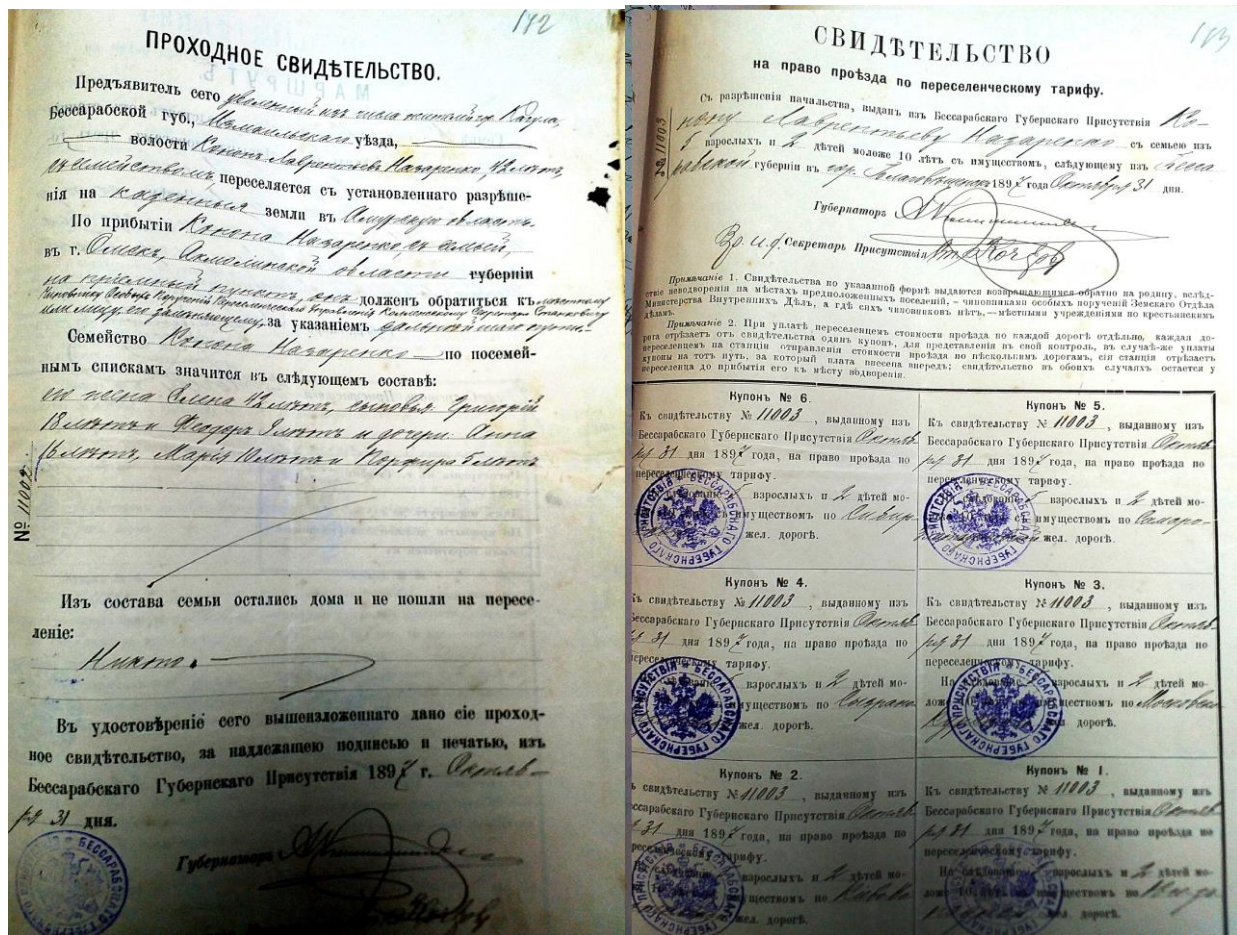 172
ПРОХОДНОЕ СВИДѢТЕЛЬСТВО.
Предъявитель сего уволенный изъ числа жителей гр. Кагула,
Бессарабской губ., Измаильскаго уѣзда,
волости Кононъ Лаврентьевъ Назаренко, 42 лѣтъ,
съ семействомъ, переселяется съ установленнаго разрѣше-
нія на казенныя земли въ Амурскую область.
По прибытіи Конона Назаренко съ семьей,
въ г. Омскъ, Акмолинской области губерніи
на пріемный пунктъ, онъ долженъ обратиться къ мѣстному
Чиновнику Особыхъ Порученій Переселенческаго Управленія Коллежскому Секретарю Станкевичу
или лицу, его замѣняющему, за указаніемъ дальнѣйшаго пути.
Семейство Конона Назаренко по посемей-
нымъ спискамъ значится въ слѣдующемъ составѣ:
его жена Елена 42 лѣтъ, сыновья Григорій
18 лѣтъ и Ѳеодоръ 9 лѣтъ и дочери: Анна
16 лѣтъ, Марія 10 лѣтъ и Порфира 5 лѣтъ
№ 11002
Изъ состава семьи остались дома и не пошли на пересе-
леніе:
Никто.
Въ удостовѣреніе сего вышеизложеннаго дано сіе проход-
ное свидѣтельство, за надлежащею подписью и печатью, изъ
Бессарабскаго Губернскаго Присутствія 1897 г. Октяб-
ря 31 дня.
Губернаторъ
173
СВИДѢТЕЛЬСТВО
на право проѣзда по переселенческому тарифу.
№ 11003
Съ разрѣшенія начальства, выданъ изъ Бессарабскаго Губернскаго Присутствія Ко-
нону Лаврентьеву Назаренко съ семьею изъ
5 взрослыхъ и 2 дѣтей моложе 10 лѣтъ съ имуществомъ, слѣдующему изъ Бесса-
рабской губерніи въ гор. Благовѣщенскъ 1897 года Октября 31 дня.
Губернаторъ
Вр. и. д. Секретарь Присутствія
Примѣчаніе 1. Свидѣтельства по указанной формѣ выдаются возвращающимся обратно на родину, вслѣд-
ствіе неводворенія на мѣстахъ предположенныхъ поселеній, – чиновниками особыхъ порученій Земскаго Отдѣла
Министерства Внутреннихъ Дѣлъ, а гдѣ сихъ чиновниковъ нѣтъ, – мѣстными учрежденіями по крестьянскимъ
дѣламъ.
Примѣчаніе 2. При уплатѣ переселенцемъ стоимости проѣзда по каждой дорогѣ отдѣльно, каждая до-
рога отрѣзаетъ отъ свидѣтельства одинъ купонъ, для представленія въ свой контроль, въ случаѣ-же уплаты
переселенцемъ на станціи отправленія стоимости проѣзда по нѣсколькимъ дорогамъ, сія станція отрѣзаетъ
купоны на тотъ путь, за который плата внесена впередъ; свидѣтельство въ обоихъ случаяхъ остается у
переселенца до прибытія его къ мѣсту водворенія.
Купонъ № 6.
Къ свидѣтельству № 11003, выданному изъ
Бессарабскаго Губернскаго Присутствія Октяб-
ря 31 дня 1897 года, на право проѣзда по
переселенческому тарифу.
На слѣдованіе 5 взрослыхъ и 2 дѣтей мо-
ложе 10 лѣтъ съ имуществомъ по Сибир-
жел. дорогѣ.
Купонъ № 5.
Къ свидѣтельству № 11003, выданному изъ
Бессарабскаго Губернскаго Присутствія Октяб-
ря 31 дня 1897 года, на право проѣзда по
переселенческому тарифу.
На слѣдованіе 5 взрослыхъ и 2 дѣтей мо-
ложе 10 лѣтъ съ имуществомъ по Самаро-
Златоустовской жел. дорогѣ.
Купонъ № 4.
Къ свидѣтельству № 11003, выданному изъ
Бессарабскаго Губернскаго Присутствія Октяб-
ря 31 дня 1897 года, на право проѣзда по
переселенческому тарифу.
На слѣдованіе 5 взрослыхъ и 2 дѣтей мо-
имуществомъ по Сызрано-
жел. дорогѣ.
Купонъ № 3.
Къ свидѣтельству № 11003, выданному изъ
Бессарабскаго Губернскаго Присутствія Октяб-
ря 31 дня 1897 года, на право проѣзда по
переселенческому тарифу.
На слѣдованіе 5 взрослыхъ и 2 дѣтей мо-
ложе 10 лѣтъ съ имуществомъ по Московско-
жел. дорогѣ.
Купонъ № 2.
Къ свидѣтельству № 11003, выданному изъ
Бессарабскаго Губернскаго Присутствія Октяб-
ря 31 дня 1897 года, на право проѣзда по
переселенческому тарифу.
взрослыхъ и 2 дѣтей мо-
имуществомъ по Кіево-
жел. дорогѣ.
Купонъ № 1.
Къ свидѣтельству № 11003, выданному изъ
Бессарабскаго Губернскаго Присутствія Октяб-
ря 31 дня 1897 года, на право проѣзда по
переселенческому тарифу.
На слѣдованіе 5 взрослыхъ и 2 дѣтей мо-
ложе 10 лѣтъ съ имуществомъ по Юго-За-
жел. дорогѣ.
БЕССАРАБСКАГО ГУБЕРНСКАГО ПРИСУТСТВІЯ